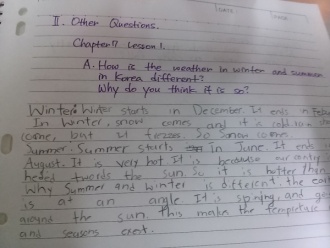 II. Other Questions.
Chapter 17 Lesson 1.
A. How is the weather in winter and summer
in Korea different?
Why do you think it is so?
Winter: Winter starts in December. It ends in
In Winter, snow comes and it is
come, but it So snow comes
Summer: Summer starts in June. It ends
August. It is very hot It is because our
heded twords the sun. So it is hotter
Why Summer and winter is different, the
is at an angle. It is spining and
around the sun. This make the
and seasons